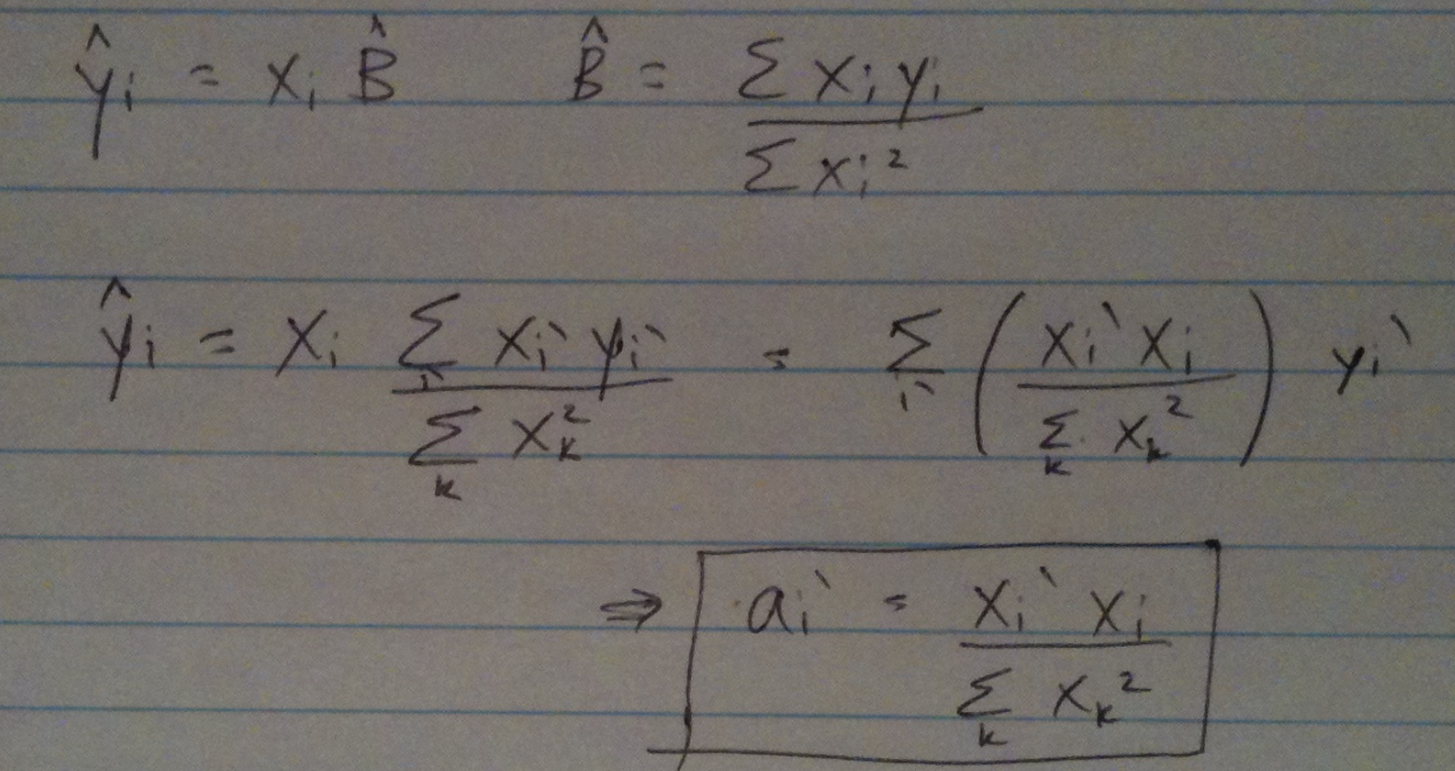 ŷᵢ = xᵢ B̂    B̂ = Σ xᵢ yᵢ / Σ xᵢ²
ŷᵢ = xᵢ Σ_i` xᵢ` yᵢ` / Σ_k x_k² = Σ_i` ( xᵢ` xᵢ / Σ_k x_k² ) yᵢ`
⇒ aᵢ` = xᵢ` xᵢ / Σ_k x_k²